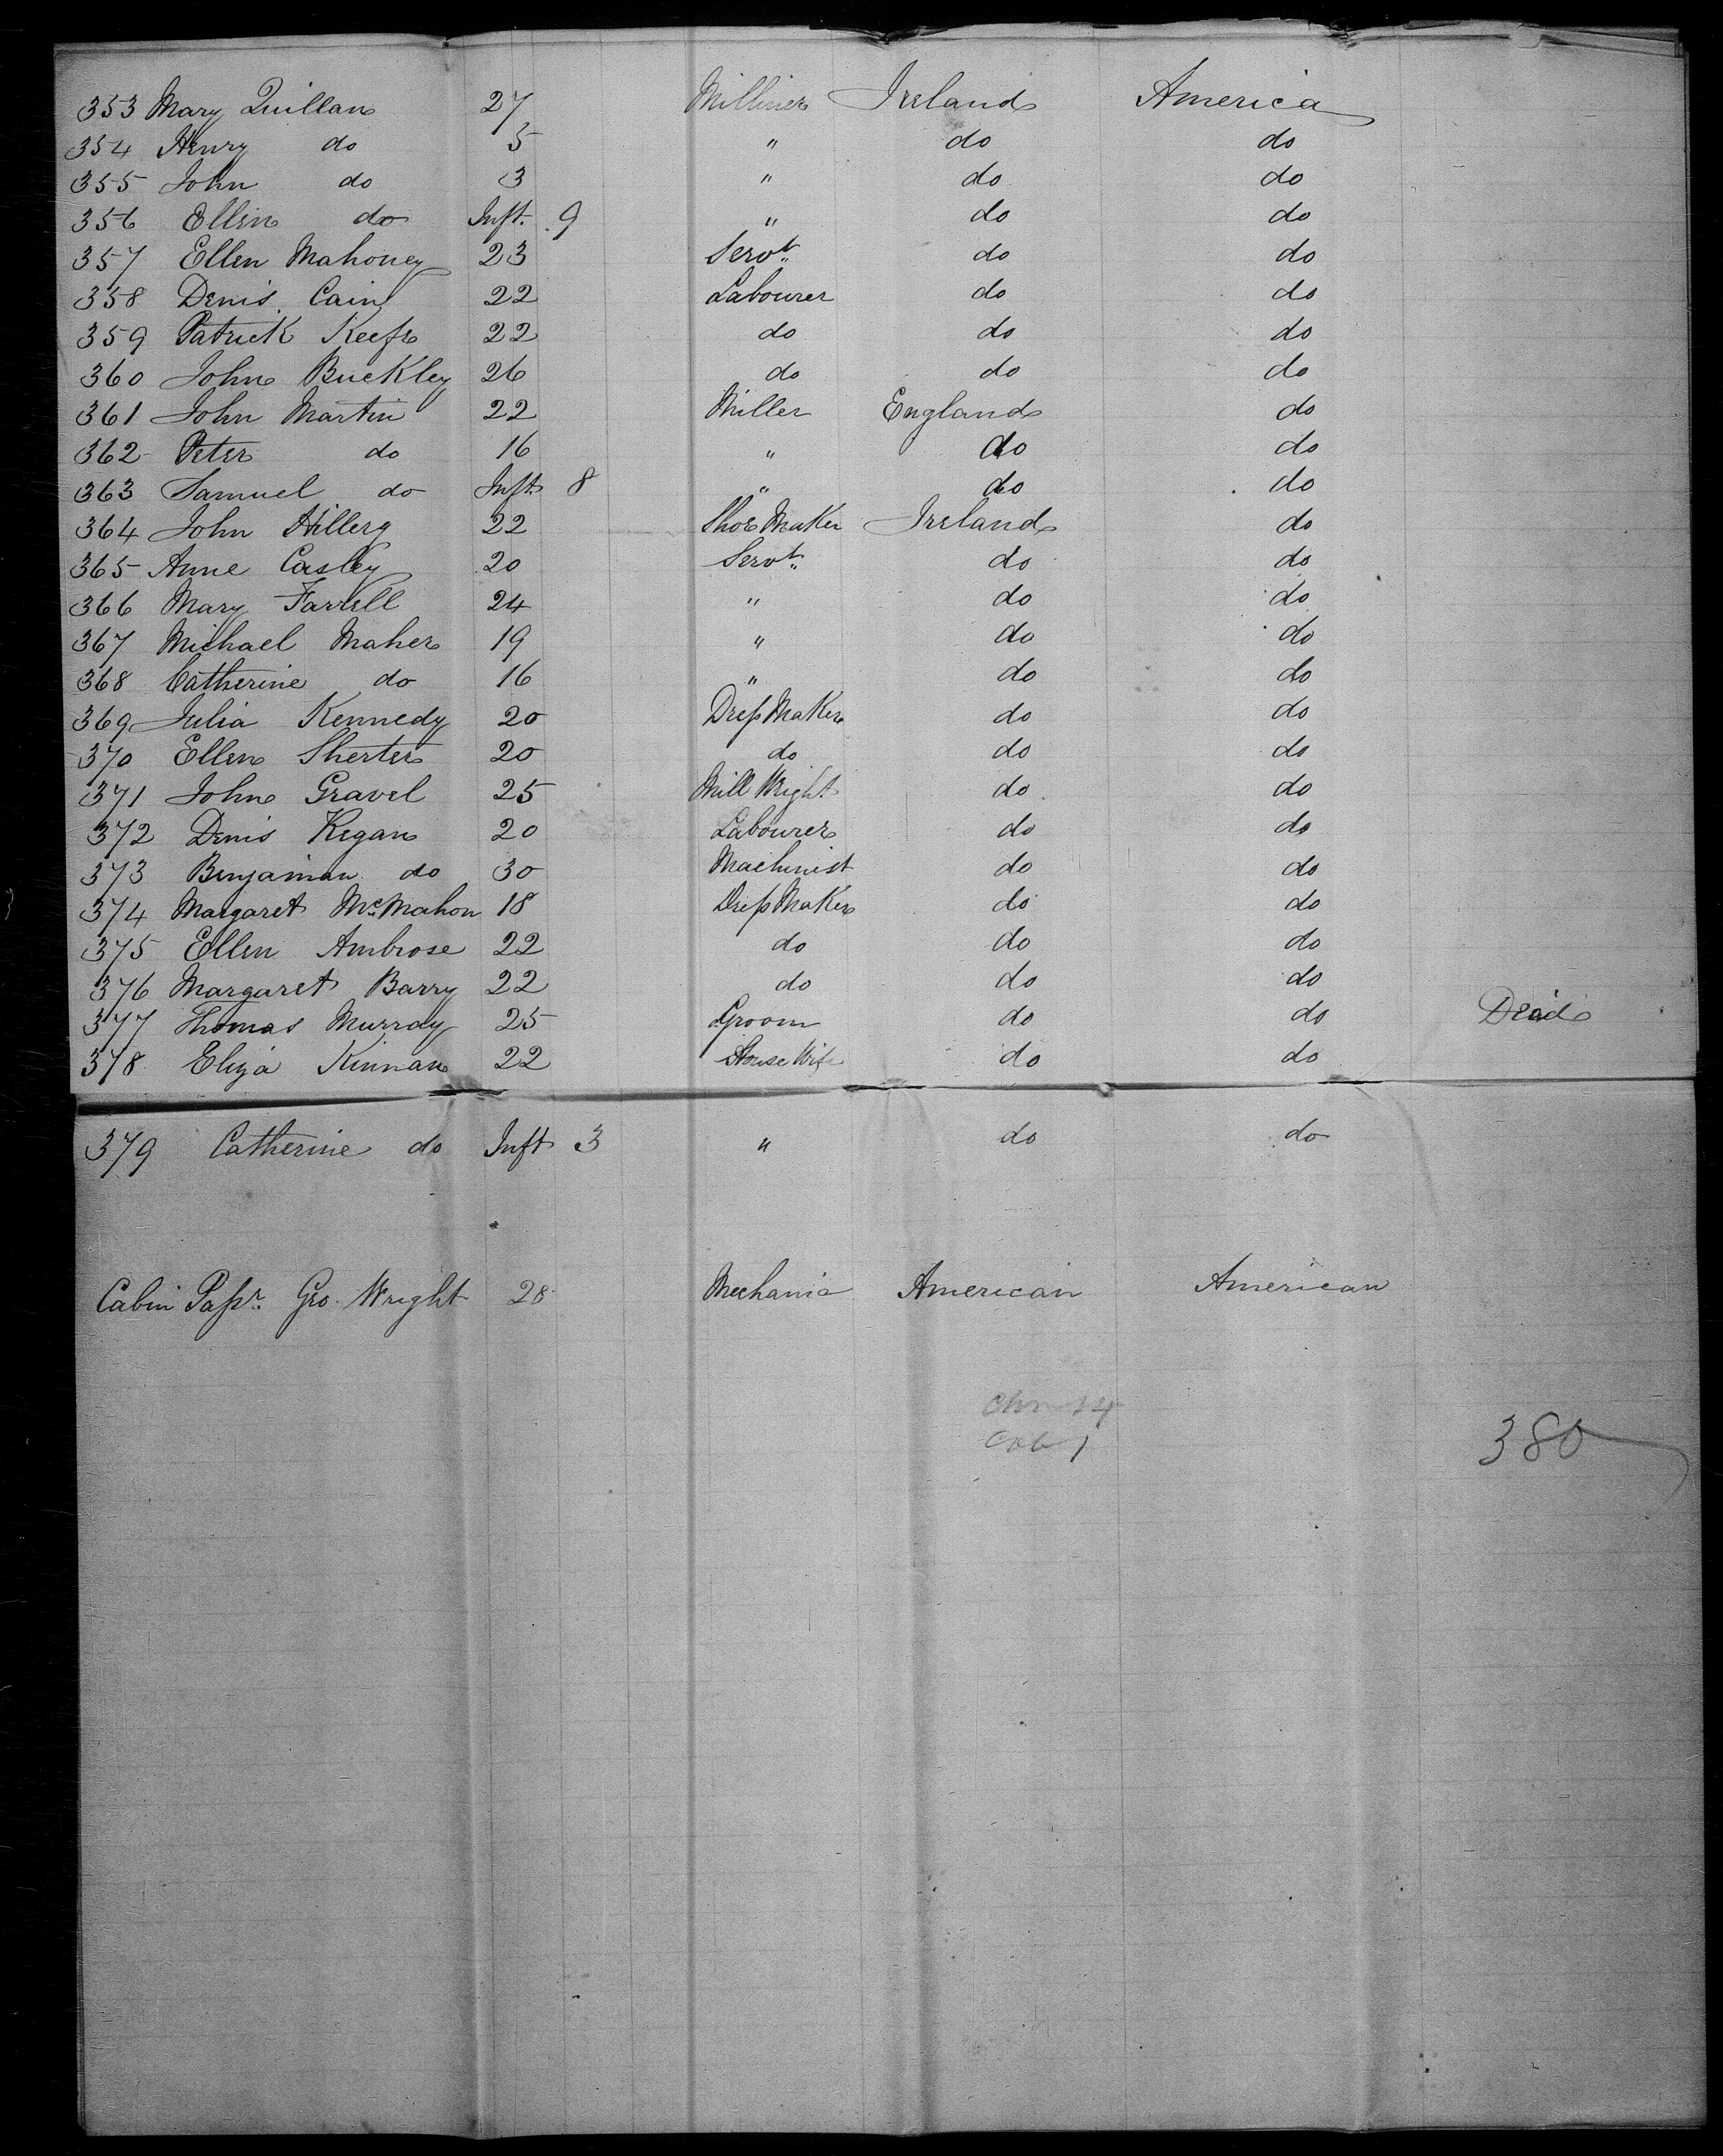 353 Mary Quillan 27 Milliner Ireland America
354 Henry do 5 " do do
355 John do 3 " do do
356 Ellen do Inft. 9 " do do
357 Ellen Mahoney 23 Servt. do do
358 Denis Cain 22 Labourer do do
359 Patrick Keefe 22 do do do
360 John Buckley 26 do do do
361 John Martin 22 Miller England do
362 Peter do 16 " do do
363 Samuel do Inft. 8 " do do
364 John Hillery 22 Shoe Maker Ireland do
365 Anne Casley 20 Servt. do do
366 Mary Farrell 24 " do do
367 Michael Maher 19 " do do
368 Catherine do 16 " do do
369 Julia Kennedy 20 Dress Maker do do
370 Ellen 20 do do do
371 John Gravel 25 Mill Wright do do
372 Denis Regan 20 Labourer do do
373 Benjaman do 30 Machinist do do
374 Margaret McMahon 18 Dress Maker do do
375 Ellen Ambrose 22 do do do
376 Margaret Barry 22 do do do
377 Thomas Murray 25 Groom do do Dead
378 Eliza Kinnan 22 House Wife do do
379 Catherine do Inft 3 " do do
Cabin Passr. Geo. Wright 28 Mechanic American American
Cab 1
380